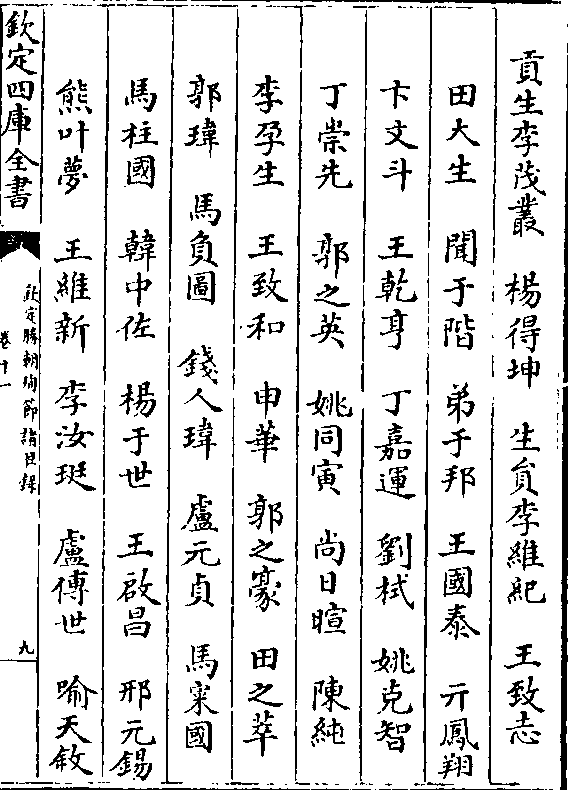 貢生李茂叢 楊得坤 生員李維紀 王致志
田大生 聞于階 弟于邦 王國泰 亓鳳翔
卞文斗 王乾亨 丁嘉運 劉栻 姚克智
丁崇先 郭之英 姚同寅 尚日暄 陳純
李孕生 王致和 申華 郭之豪 田之萃
郭瑋 馬負圖 錢人瑋 盧元貞 馬寀國
馬柱國 韓中佐 楊于世 王啟昌 邢元錫
熊叶夢 王維新 李汝珽 盧傳世 喻天敘
欽定四庫全書
欽定勝朝殉節諸臣錄
卷十一
九